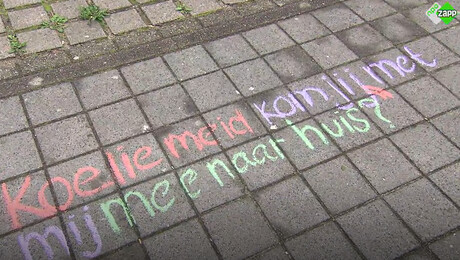 Koelie meid kom jij met
mij mee naar huis?
zapp